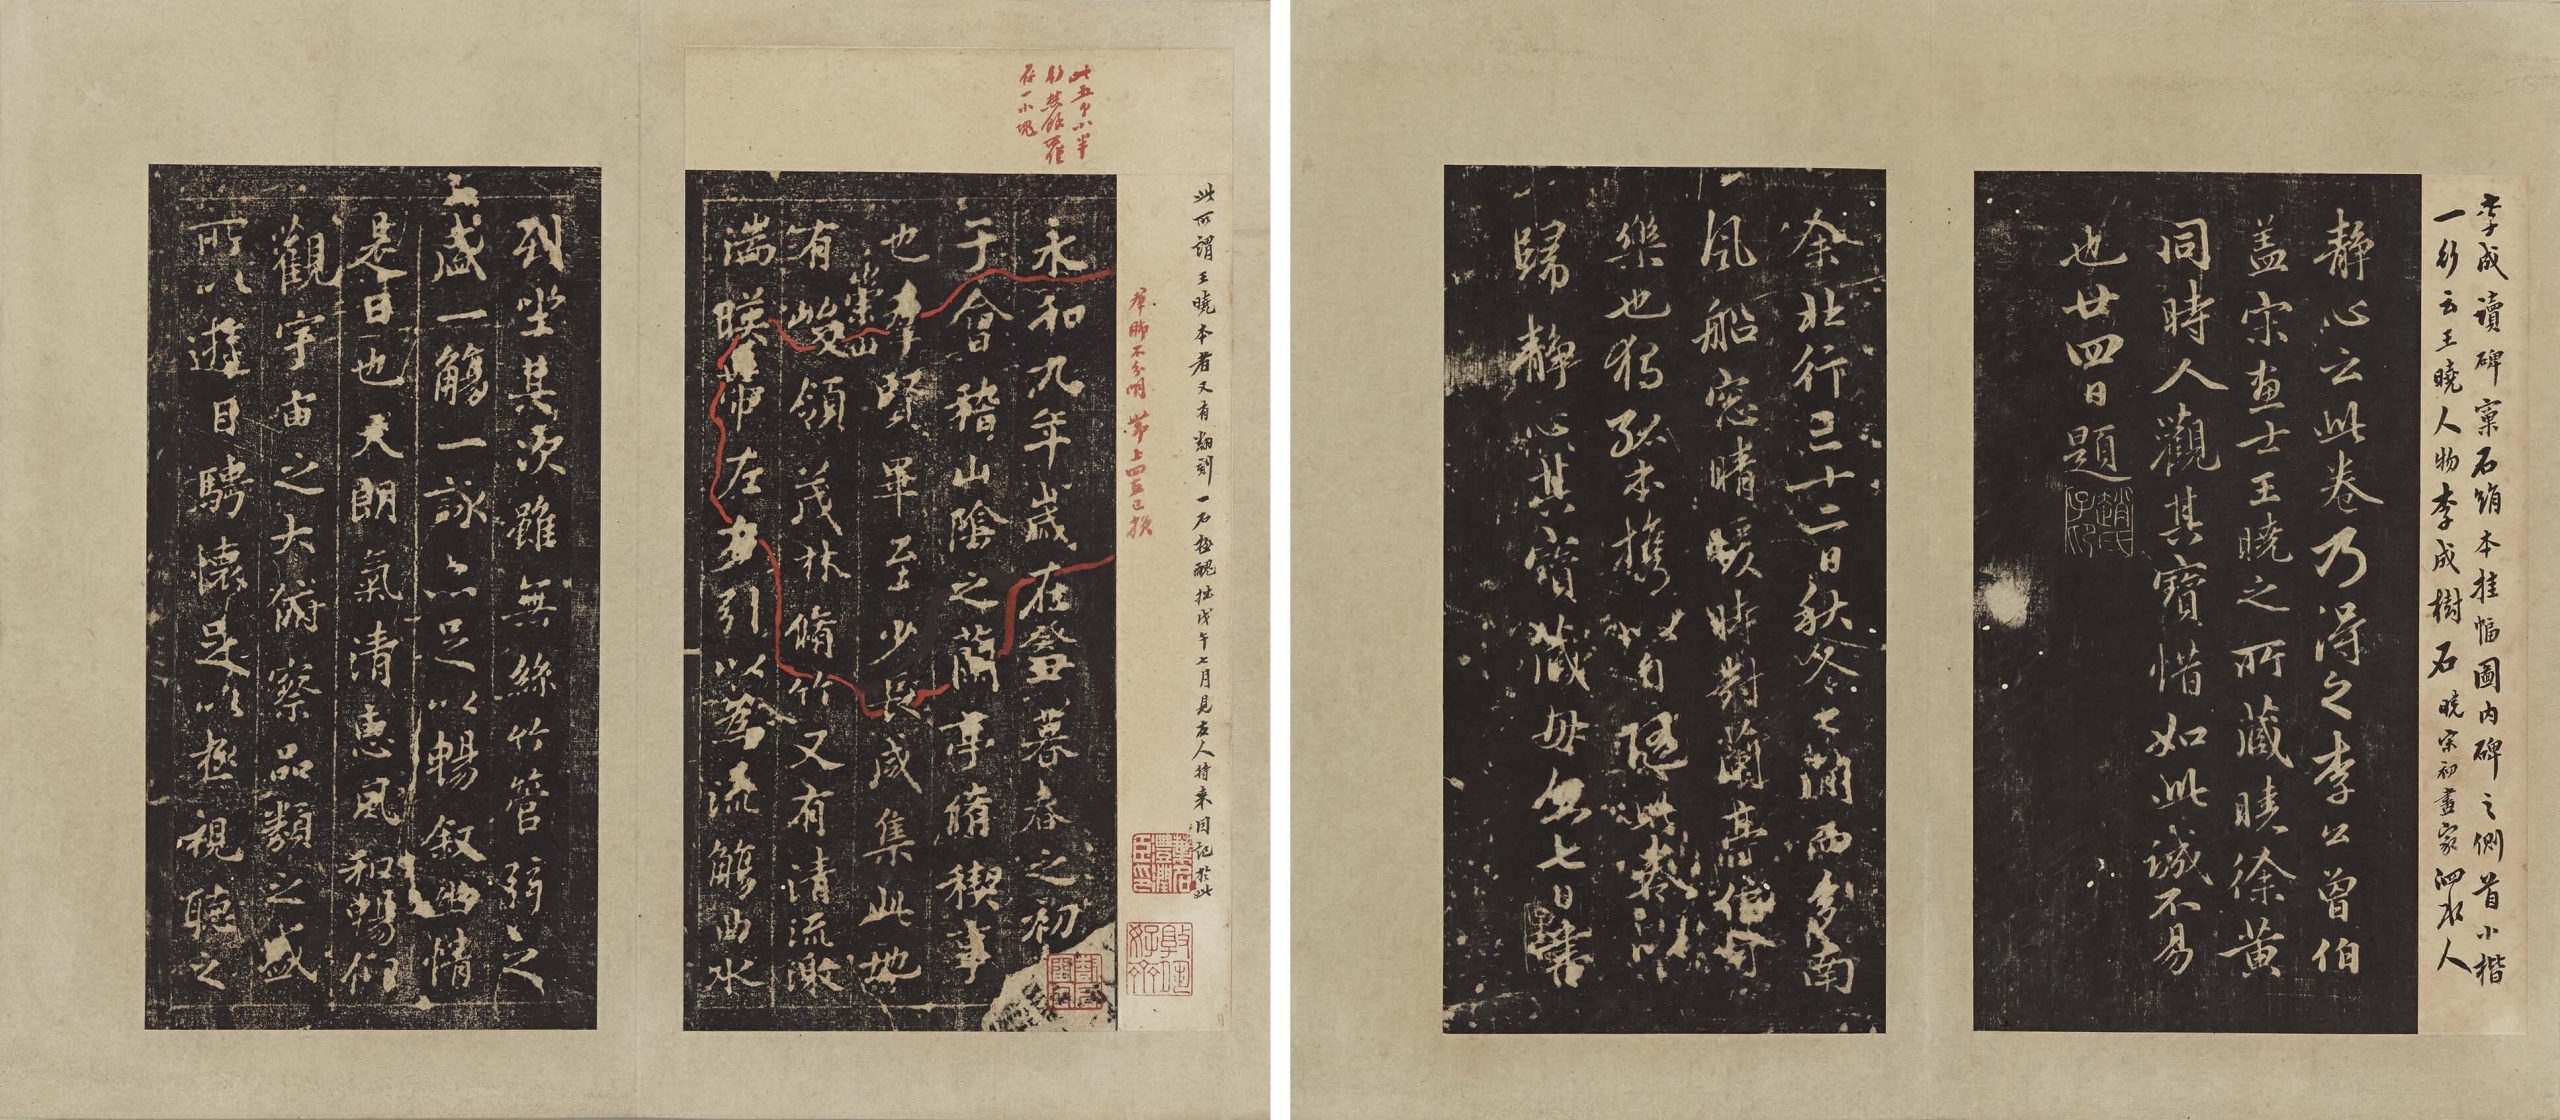 李成讀碑窠石絹本挂幅圖内碑之側首小楷
一行云王曉人物李成樹石曉宋初畫家泗水人
靜心云此卷乃得之李公曾伯
盖宋畫士王曉之所藏曉徐黄
同時人觀其寶惜如此誠不易
也廿四日題
趙氏子印
余北行三十二日秋冬之間而多南
風船窓晴暖時對蘭亭
樂也獨孤本攜以自隨此卷以
歸靜心其寶藏毋忽七日書
此可謂王曉本者又有翻刻一石極醜拙戊午七月見友人持来回記於此
羣脚不分明帶上四直已損
此五行小半
存一小塊
永和九年歲在癸丑暮春之初
于會稽山陰之蘭亭脩稧事
也羣賢畢至少長咸集此地
有崇山峻領茂林脩竹又有清流激
湍暎帶左右引以爲流觴曲水
列坐其次雖無絲竹管弦之
盛一觴一詠亦足以暢叙幽情
是日也天朗氣清惠風和暢仰
觀宇宙之大俯察品類之盛
所以遊目騁懷足以極視聽之